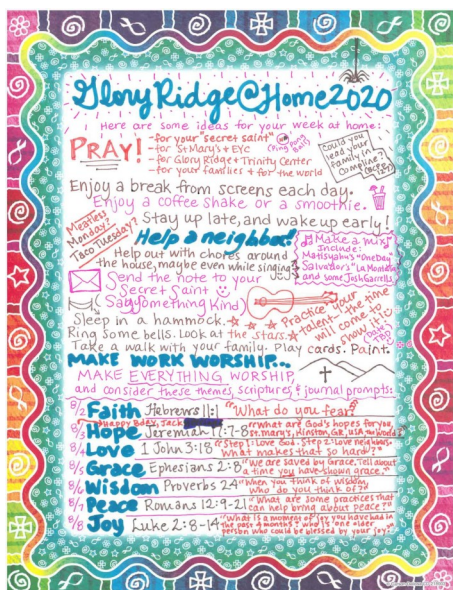 Glory Ridge@Home2020
Here are some ideas for your week at home:
PRAY!
-for your "secret saint"
(Ping Pong Ball)
-for St Mary's + EYC
-for Glory Ridge + Trinity Center
-for your families + for the world
Could you
lead your
family in
Compline?
Enjoy a break from screens each day.
Enjoy a coffee shake or a smoothie.
Stay up late, and wake up early!
Meatless
Monday?
Taco Tuesday?
Help a neighbor!
Help out with chores around
the house, maybe even while singing
Make a mix
Include:
Matisyahu's "One Day"
Salvador's "La Montaña"
and some Josh Garrels
Send the note to your
Secret Saint (or
Say Something Kind)
Practice your
talent - the time
will come to
show it
Sleep in a hammock.
Ring some bells. Look at the stars.
Take a walk with your family. Play cards. Paint.
MAKE WORK WORSHIP...
MAKE EVERYTHING WORSHIP,
and consider these themes, scriptures, & journal prompts:
8/2 Faith Hebrews 11:1 "What do you fear?"
Happy Bday, Jack
8/3 Hope Jeremiah 17:7-8 "What are God's hopes for you, St. Mary's, Kinston, GR, USA, the World?"
8/4 Love 1 John 3:18 "Step 1: Love God. Step 2: Love neighbors. What makes that so hard?"
8/5 Grace Ephesians 2:8 "We are saved by Grace. Tell about a time you have shown grace."
8/6 Wisdom Proverbs 24 "When you think of wisdom, who do you think of?"
8/7 Peace Romans 12:9-21 "What are some practices that can help bring about peace?"
8/8 Joy Luke 2:8-14 "What is a moment of joy you have had in the past 4 months? Who is one older person who could be blessed by your joy?"